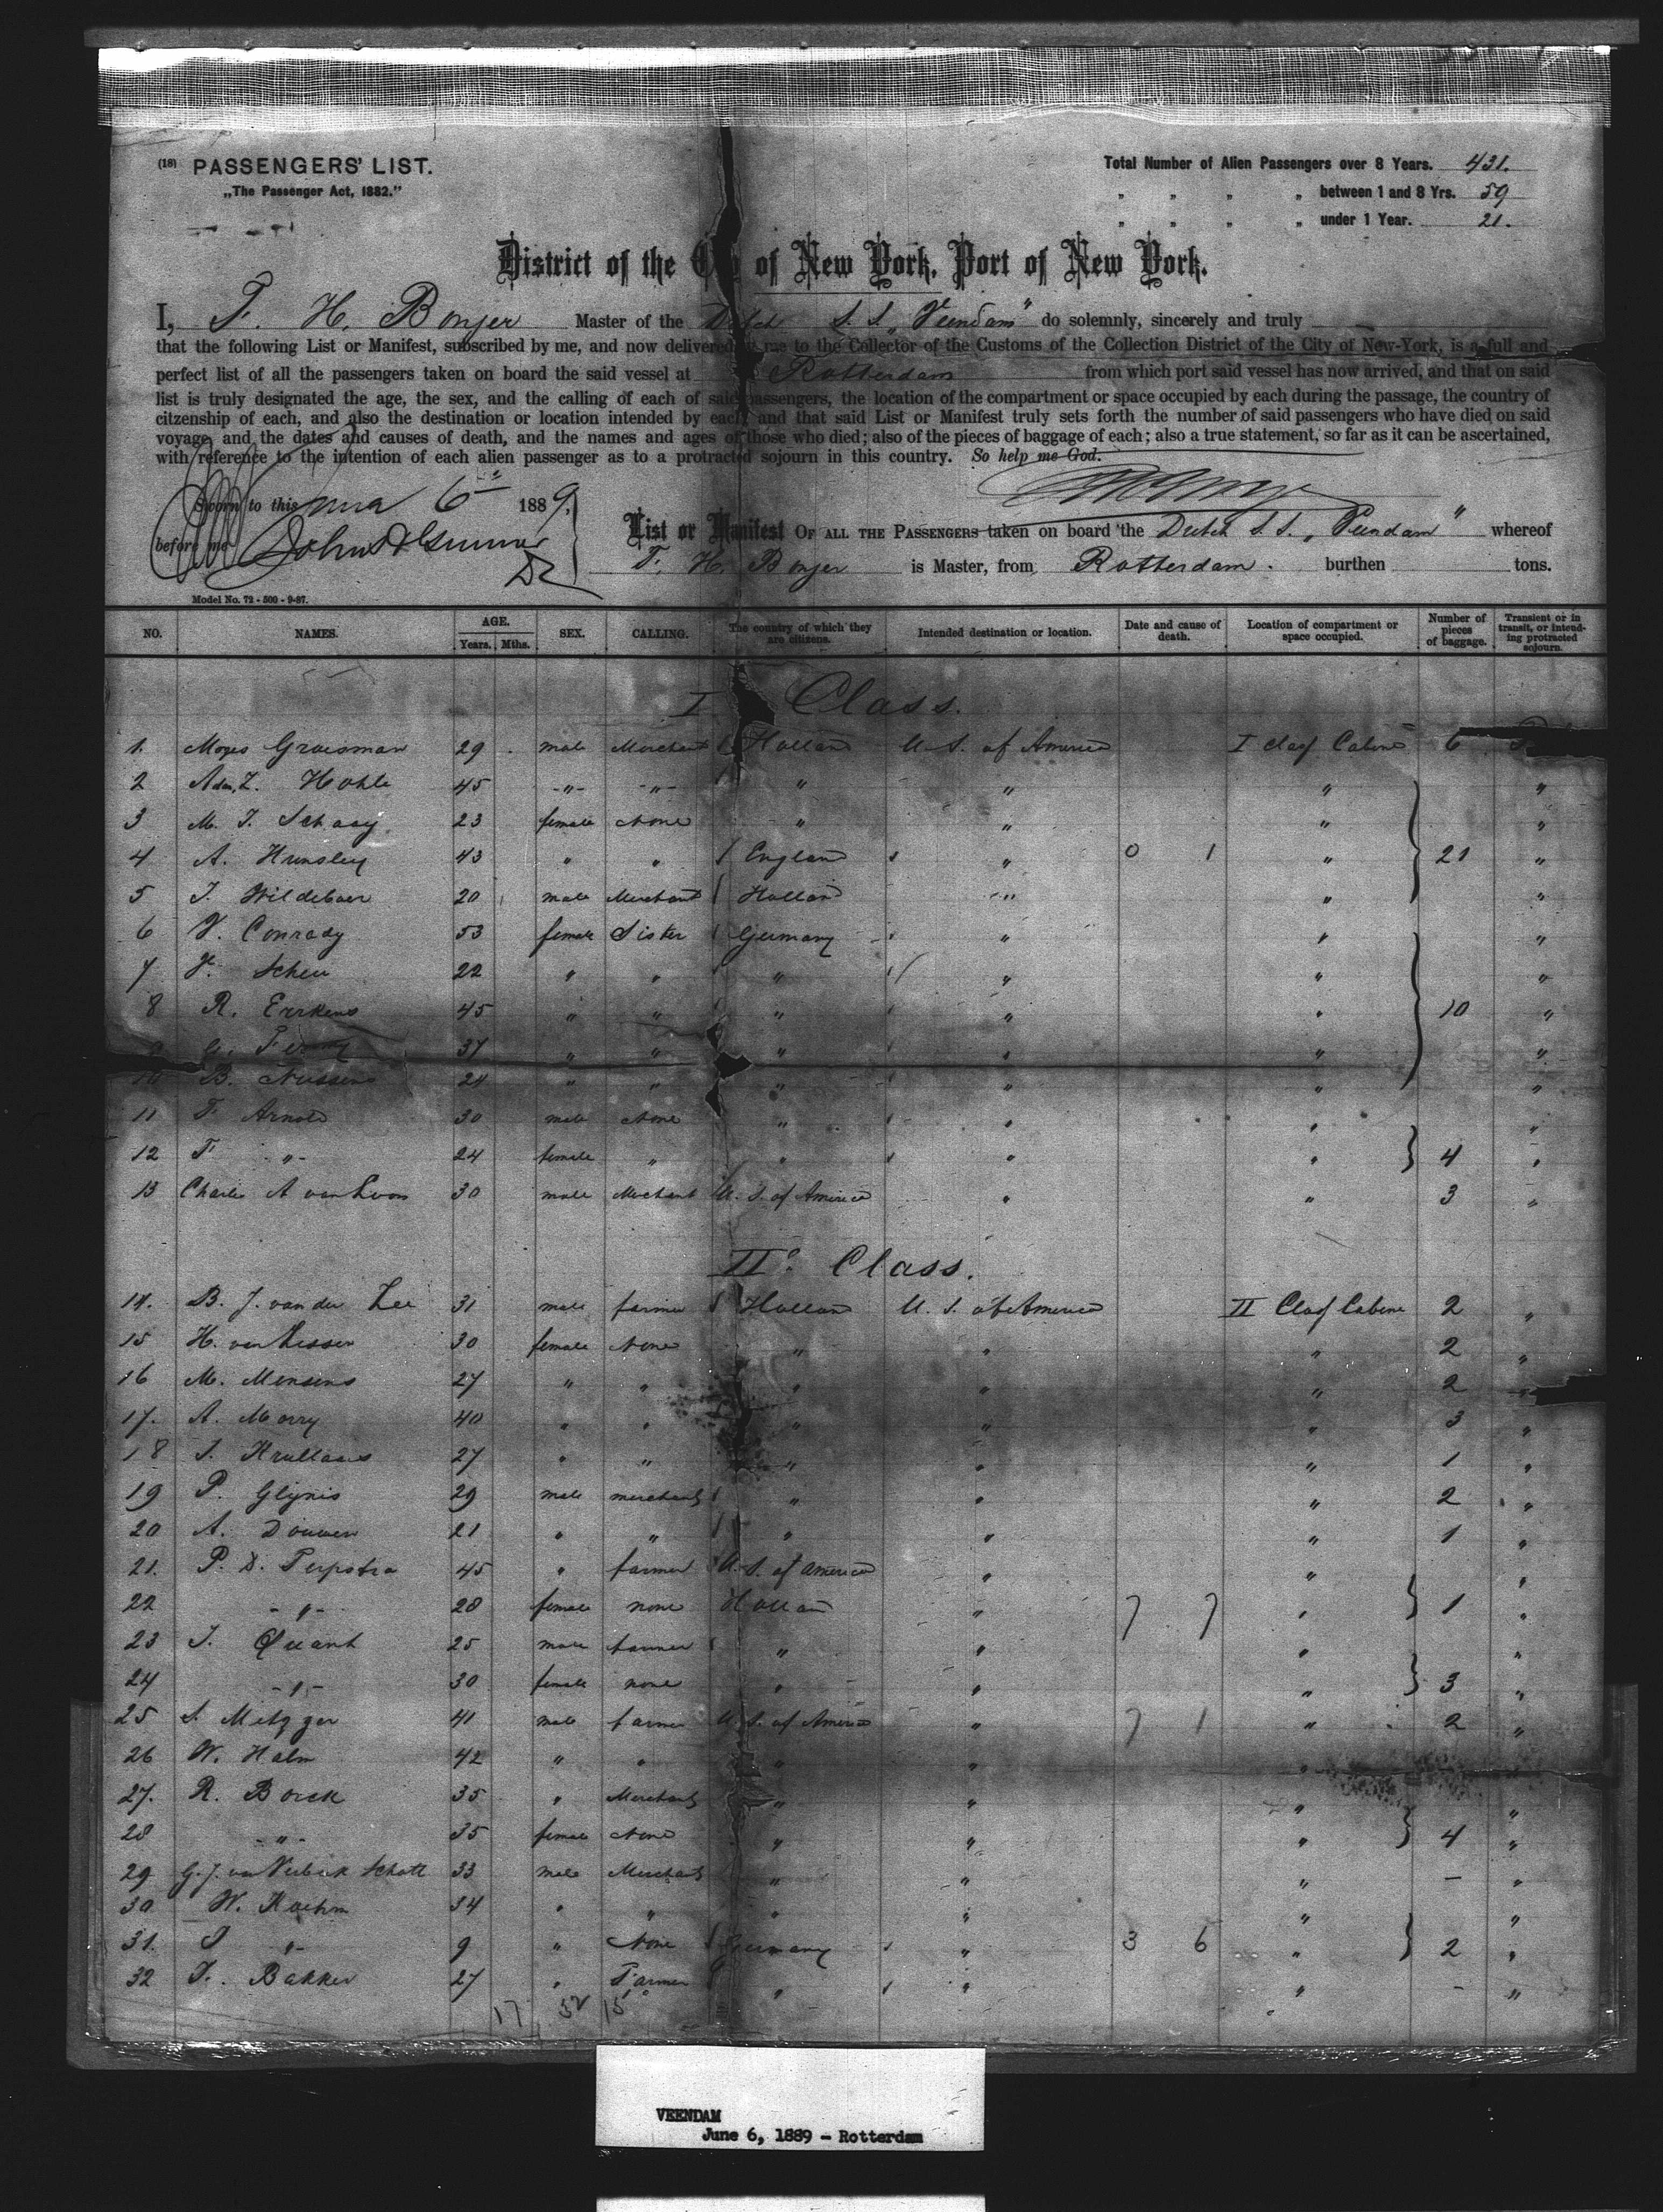 (18) PASSENGERS' LIST.
„The Passenger Act, 1882."
Total Number of Alien Passengers over 8 Years. 431.
„ „ „ „ between 1 and 8 Yrs. 59
„ „ „ „ under 1 Year. 21.
District of the City of New York, Port of New York.
I, F. H. Bonjer Master of the Dutch S. S. „Veendam" do solemnly, sincerely and truly
that the following List or Manifest, subscribed by me, and now delivered by me to the Collector of the Customs of the Collection District of the City of New-York, is a full and
perfect list of all the passengers taken on board the said vessel at Rotterdam from which port said vessel has now arrived, and that on said
list is truly designated the age, the sex, and the calling of each of said passengers, the location of the compartment or space occupied by each during the passage, the country of
citzenship of each, and also the destination or location intended by each and that said List or Manifest truly sets forth the number of said passengers who have died on said
voyage, and the dates and causes of death, and the names and ages of those who died; also of the pieces of baggage of each; also a true statement, so far as it can be ascertained,
with reference to the intention of each alien passenger as to a protracted sojourn in this country. So help me God.
Sworn to this 6 1889.
before me
List or Manifest OF ALL THE PASSENGERS taken on board the Dutch S. S. „Veendam" whereof
F. H. Bonjer is Master, from Rotterdam. burthen tons.
Model No. 72 - 500 - 9-87.
NO. NAMES. AGE. Years. Mths. SEX. CALLING. The country of which they are citizens. Intended destination or location. Date and cause of death. Location of compartment or space occupied. Number of pieces of baggage. Transient or in transit, or intending protracted sojourn.
I Class.
1. Moges Groesman 29 male Merchant Holland U. S. of America I class Cabine 6
2 Hohle 45 -"- -"- " " " "
3 M. J. Schaay 23 female None " " " "
4 A. Hunsley 43 " " England " 0 1 " 21 "
5 J. Wildeboer 20 male Merchant Holland " " "
6 V. Conrady 53 female Sister Germany " " "
7 Scheu 22 " " " " " "
8 R. Errkens 45 " " " " " 10 "
9 37 " " " " " "
10 B. Nussens 24 " " " " " "
11 F. Arnold 30 male None " " " "
12 F. -"- 24 female " " " " 4 "
13 Charles A van Loon 30 male Merchant U. S. of America " " 3 "
II. Class.
14. B. J. van der Zee 31 male farmer Holland U. S. of America II Class Cabine 2 "
15 H. van Lissen 30 female None " " " 2 "
16 M. Mensens 27 " " " " " 2 "
17. A. Morry 40 " " " " " 3 "
18 27 " " " " " 1 "
19 P. Glijnis 29 male merchant " " " 2 "
20 A. Douwen 21 " " " " " 1 "
21. P. D. Terpstra 45 " farmer U. S. of America " " "
22 -"- 28 female none Holland " 7 7 " 1 "
23 J. Quant 25 male farmer " " " "
24 -"- 30 female none " " " 3 "
25 S. Metzger 41 male farmer U. S. of America " 7 1 " 2 "
26 W. Halm 42 " " " " "
27. R. Borck 35 " Merchant " " " "
28 -"- 35 female None " " " 4 "
29 G. J. Schott 33 male Merchant " " " - "
30 W. Koehm 34 " " " " " "
31. J -"- 9 " None Germany " 3 6 " 2 "
32 J. Bakker 27 " Farmer " " " - "
17 52 15
VEENDAM
June 6, 1889 - Rotterdam